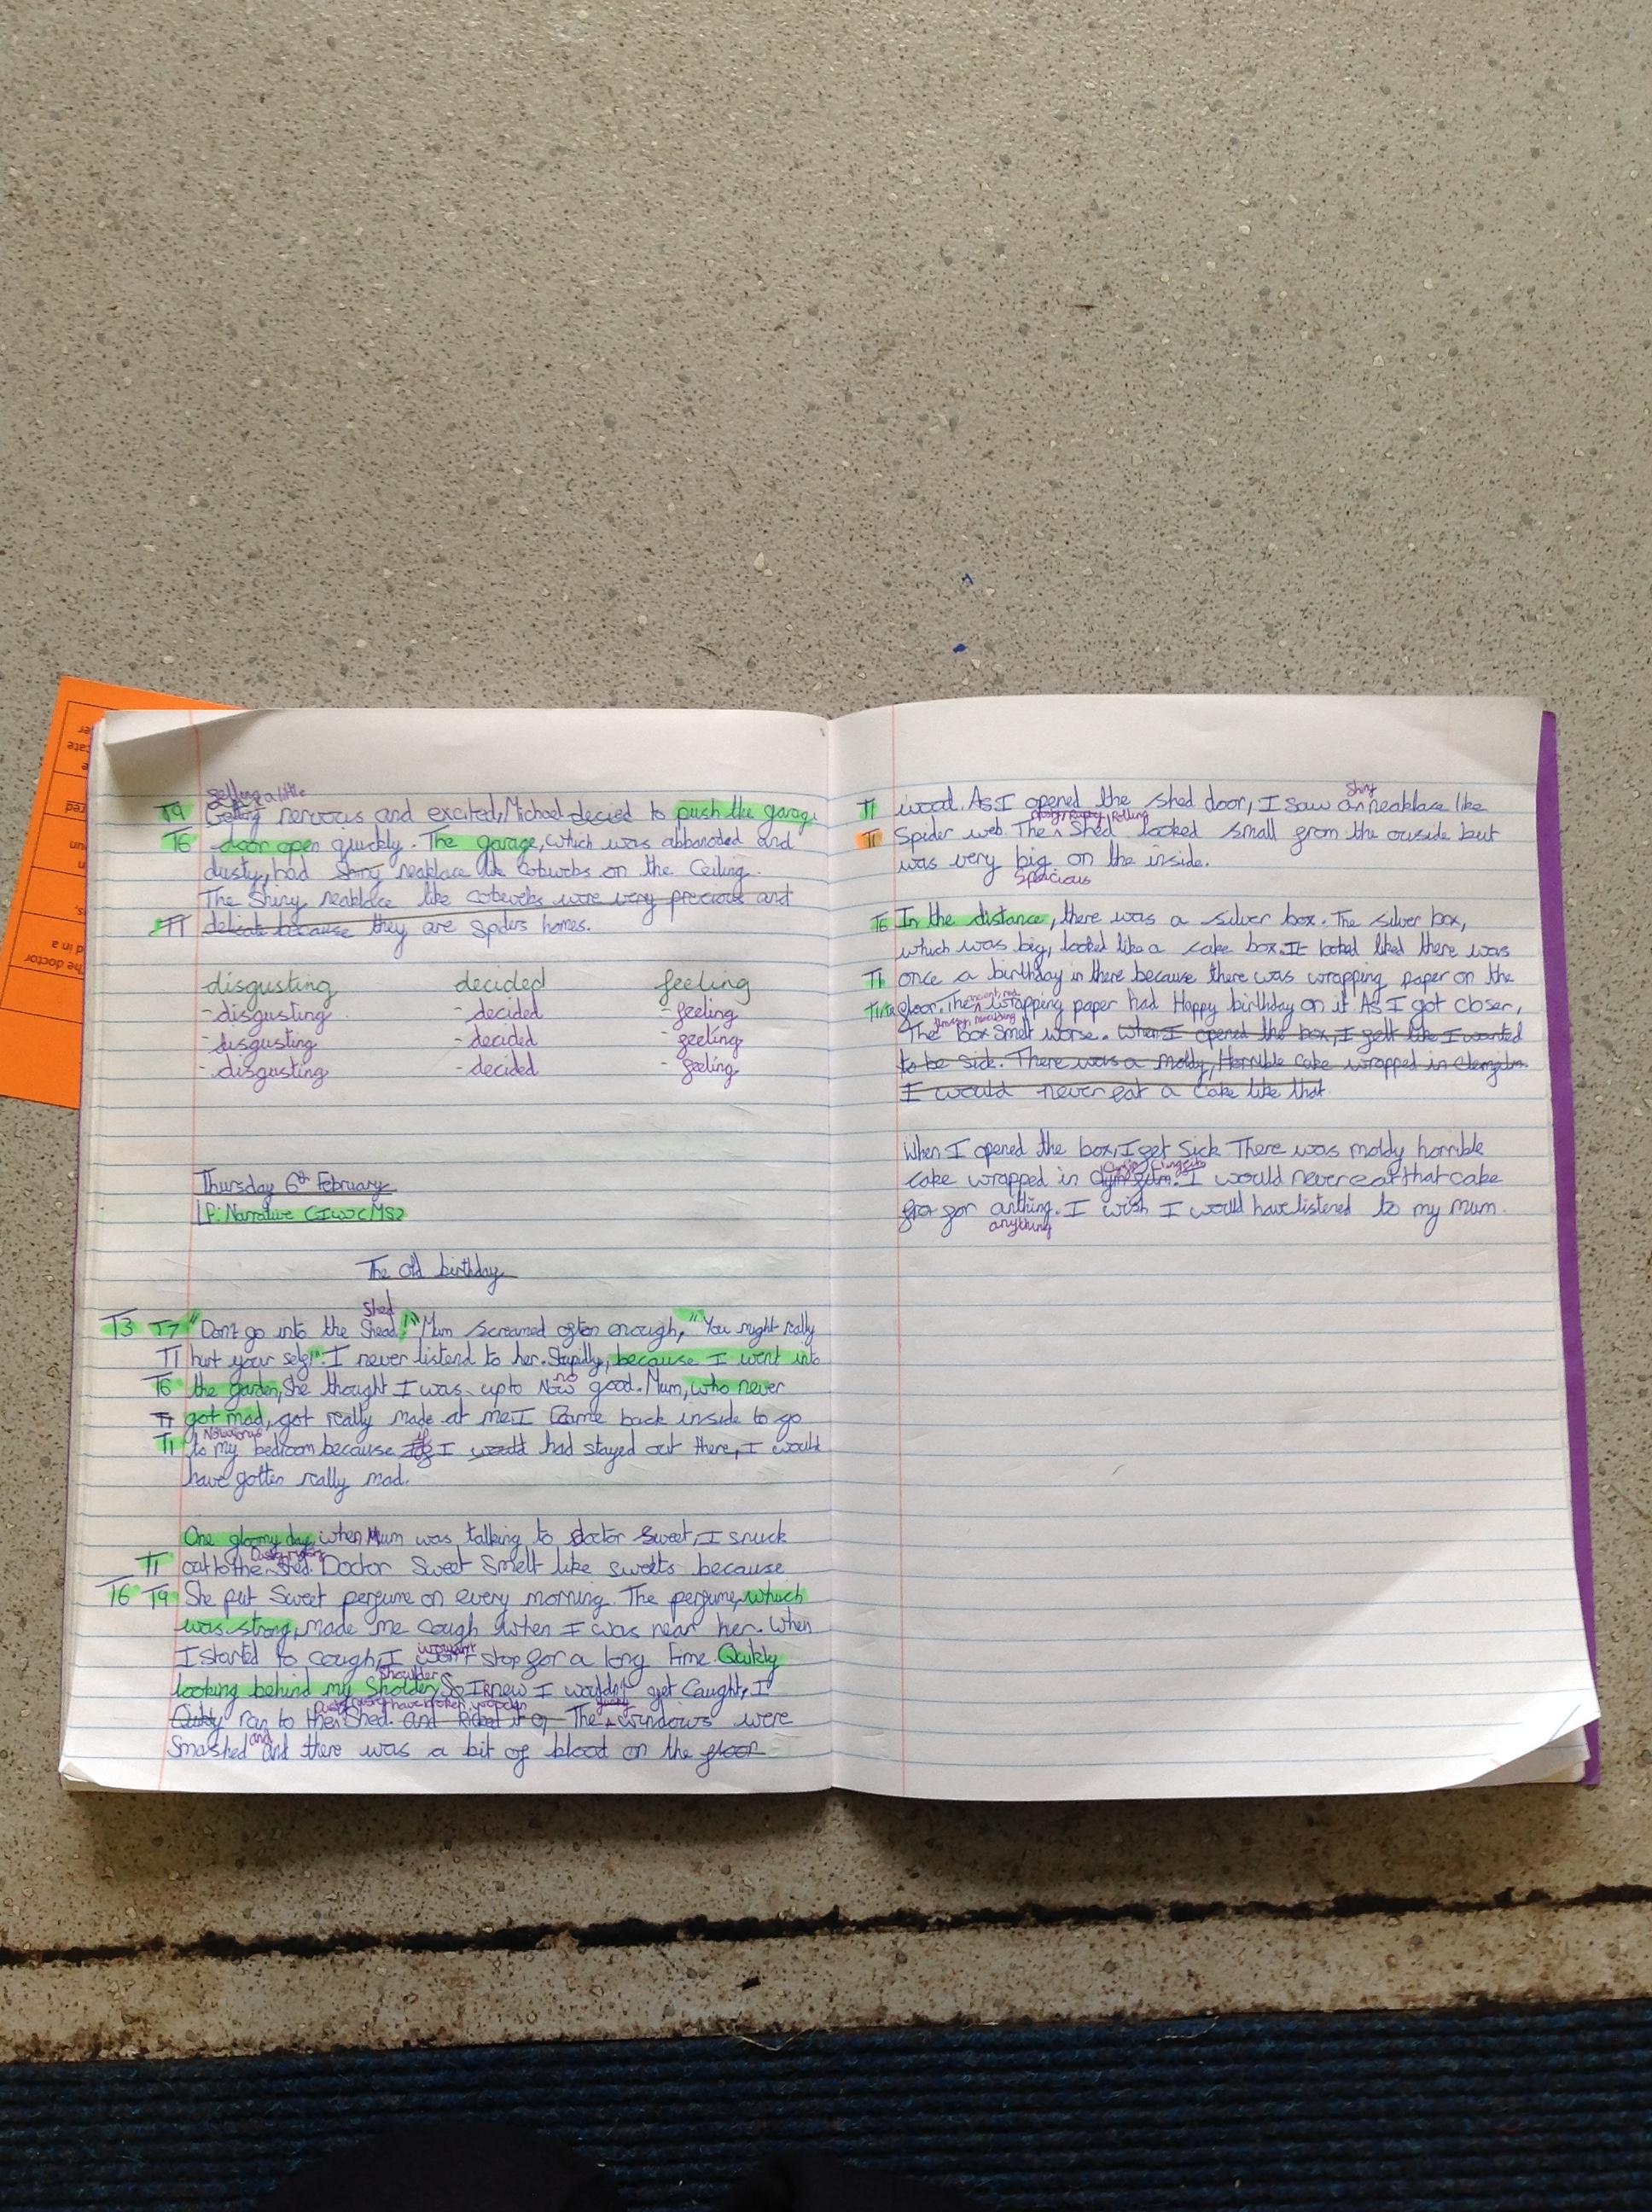 feeling a little
T9 Getting nervous and excited, Michael decied to push the garage
T6 door open quickly. The garage, which was abbanoded and
dusty, had shiny neaklace like cobwebs on the ceiling.
The Shiny neaklace like cobwebs were very precious and
T1 delicate because they are spiders homes.
disgusting decided feeling
- disgusting - decided - feeling
- disgusting - decided - feeling
- disgusting - decided - feeling
Thursday 6th February
LP: Narrative
The Old birthday
Shed
T3 T7 "Don't go into the Shead!" Mum screamed often enough, "You might really
T1 hurt your self!" I never listend to her. Stupidly, because I went into
no
T6 the garden, She thought I was up to Now good. Mum, who never
T1 got mad, got really made at me. I Came back inside to go
T1 to my bedroom because if I would had stayed out there, I would
have gotten really mad.
One gloomy day, when Mum was talking to doctor Sweet, I snuck
T1 out to the Shed. Doctor Sweet Smelt like sweets because
T6 T9 She put Sweet perfume on every morning. The perfume, which
was strong, made me cough when I was near her. When
I started to cough, I won't stop for a long time. Quikly
Shoulder
looking behind my Sholder, So I knew I wouldn't get Caught, I
Quikly ran to the Shed. and The windows were
and
Smashed and there was a bit of blood on the floor
Shiny
T1 wood. As I opened the shed door, I saw an neaklace like
T1 Spider web. The Shed looked small from the ouside but
was very big on the inside.
Spacious
T6 In the distance, there was a silver box. The silver box,
which was big, looked like a cake box. It looked liked there was
T1 once a birthday in there because there was wrapping paper on the
floor. The wrapping paper had Happy birthday on it. As I got closer,
The box Smelt worse. When I opened the box, I felt like I wanted
to be Sick. There was a moldy, Horrible cake wrapped in
I would never eat a cake like that.
When I opened the box, I felt Sick There was moldy horrible
cake wrapped in I would never eat that cake
for for anthing. I wish I would have listened to my mum.
anything